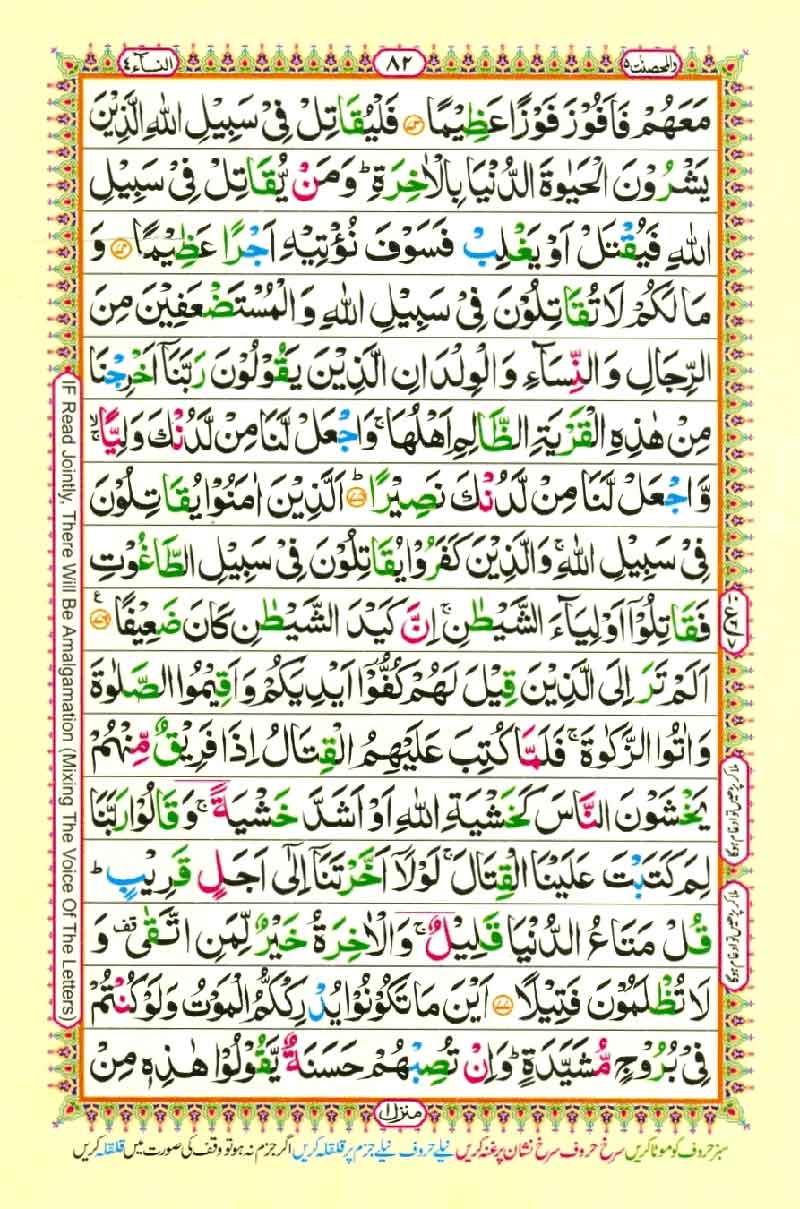 والمحصنت ۵
۸۲
النسآء ٤
مَعَهُمْ فَاَفُوْزَ فَوْزًا عَظِيْمًا ﴿۷۳﴾ فَلْيُقَاتِلْ فِىْ سَبِيْلِ اللّٰهِ الَّذِيْنَ
يَشْرُوْنَ الْحَيٰوةَ الدُّنْيَا بِالْاٰخِرَةِ ؕ وَمَنْ يُّقَاتِلْ فِىْ سَبِيْلِ
اللّٰهِ فَيُقْتَلْ اَوْ يَغْلِبْ فَسَوْفَ نُؤْتِيْهِ اَجْرًا عَظِيْمًا ﴿۷۴﴾ وَ
مَا لَكُمْ لَا تُقَاتِلُوْنَ فِىْ سَبِيْلِ اللّٰهِ وَالْمُسْتَضْعَفِيْنَ مِنَ
الرِّجَالِ وَالنِّسَآءِ وَالْوِلْدَانِ الَّذِيْنَ يَقُوْلُوْنَ رَبَّنَاۤ اَخْرِجْنَا
مِنْ هٰذِهِ الْقَرْيَةِ الظَّالِمِ اَهْلُهَا ۚ وَاجْعَلْ لَّنَا مِنْ لَّدُنْكَ وَلِيًّا ۙۚ
وَّاجْعَلْ لَّنَا مِنْ لَّدُنْكَ نَصِيْرًا ؕ﴿۷۵﴾ اَلَّذِيْنَ اٰمَنُوْا يُقَاتِلُوْنَ
فِىْ سَبِيْلِ اللّٰهِ ۚ وَالَّذِيْنَ كَفَرُوْا يُقَاتِلُوْنَ فِىْ سَبِيْلِ الطَّاغُوْتِ
فَقَاتِلُوْۤا اَوْلِيَآءَ الشَّيْطٰنِ ۚ اِنَّ كَيْدَ الشَّيْطٰنِ كَانَ ضَعِيْفًا ﴿۷۶﴾ ع
اَلَمْ تَرَ اِلَى الَّذِيْنَ قِيْلَ لَهُمْ كُفُّوْۤا اَيْدِيَكُمْ وَاَقِيْمُوا الصَّلٰوةَ
وَاٰتُوا الزَّكٰوةَ ۚ فَلَمَّا كُتِبَ عَلَيْهِمُ الْقِتَالُ اِذَا فَرِيْقٌ مِّنْهُمْ
يَخْشَوْنَ النَّاسَ كَخَشْيَةِ اللّٰهِ اَوْ اَشَدَّ خَشْيَةً ۚ وَقَالُوْا رَبَّنَا
لِمَ كَتَبْتَ عَلَيْنَا الْقِتَالَ ۚ لَوْلَاۤ اَخَّرْتَنَاۤ اِلٰٓى اَجَلٍ قَرِيْبٍ ؕ
قُلْ مَتَاعُ الدُّنْيَا قَلِيْلٌ ۚ وَالْاٰخِرَةُ خَيْرٌ لِّمَنِ اتَّقٰى قف وَ
لَا تُظْلَمُوْنَ فَتِيْلًا ﴿۷۷﴾ اَيْنَ مَا تَكُوْنُوْا يُدْرِكْكُّمُ الْمَوْتُ وَلَوْ كُنْتُمْ
فِىْ بُرُوْجٍ مُّشَيَّدَةٍ ؕ وَاِنْ تُصِبْهُمْ حَسَنَةٌ يَّقُوْلُوْا هٰذِهٖ مِنْ
منزل ۱
سبز حروف کو موٹا کریں سرخ حروف سرخ نشان پر غنہ کریں نیلے حروف نیلے جزم پر قلقلہ کریں اگر جزم نہ ہو تو وقف کی صورت میں قلقلہ کریں
IF Read Jointly, There Will Be Amalgamation (Mixing The Voice Of The Letters)